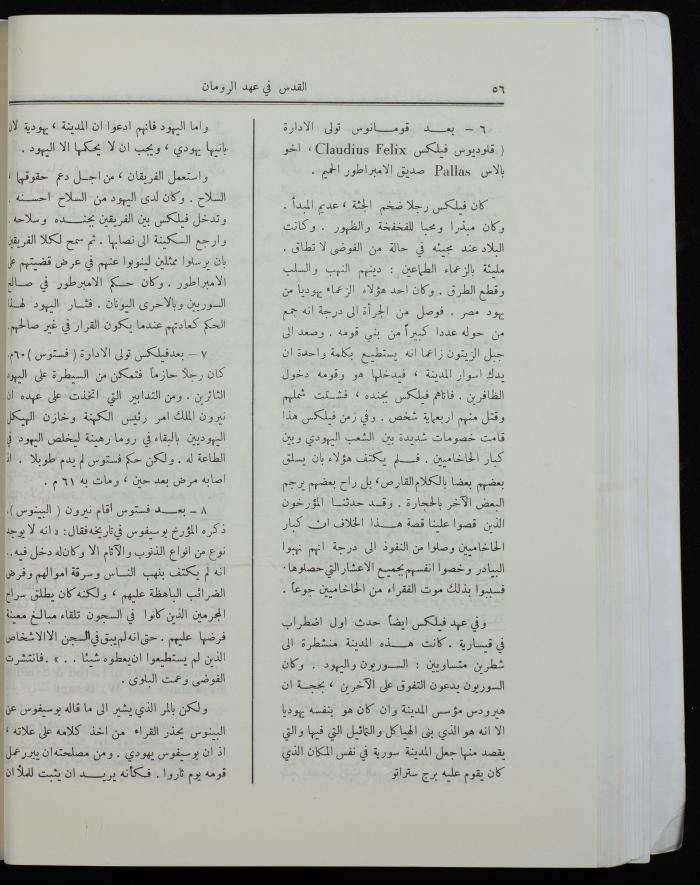 ٥٦
القدس في عهد الرومان
٦ – بعد قومانوس تولى الادارة
( قلوديوس فيلكس Claudius Felix ، اخو
بالاس Pallas صديق الامبراطور الحميم .
كان فيلكس رجلا ضخم الجثة ، عديم المبدأ .
وكان مبذرا ومحبا للفخفخة والظهور . وكانت
البلاد عند مجيئه في حالة من الفوضى لا تطاق .
مليئة بالزعماء الطماعين : دينهم النهب والسلب
وقطع الطرق . وكان احد هؤلاء الزعماء يهوديا من
يهود مصر . فوصل من الجرأة الى درجة انه جمع
من حوله عددا كبيراً من بني قومه . وصعد الى
جبل الزيتون زاعما انه يستطيع بكلمة واحدة ان
يدك اسوار المدينة ، فيدخلها هو وقومه دخول
الظافرين . فأتاهم فيلكس بجنده ، فشتت شملهم
وقتل منهم اربعماية شخص . وفي زمن فيلكس هذا
قامت خصومات شديدة بين الشعب اليهودي وبين
كبار الحاخاميين . فلم يكتف هؤلاء بان يسلق
بعضهم بعضا بالكلام القارص، بل راح بعضهم يرجم
البعض الآخر بالحجارة . وقد حدثنا المؤرخون
الذين قصوا علينا قصة هذا الخلاف ان كبار
الحاخاميين وصلوا من النفوذ الى درجة انهم نهبوا
البيادر وخصوا انفسهم بجميع الاعشار التي حصلوها .
فسببوا بذلك موت الفقراء من الحاخاميين جوعاً .
وفي عهد فيلكس ايضاً حدث اول اضطراب
في قيسارية . كانت هذه المدينة منشطرة الى
شطرين متساويين : السوريون واليهود . وكان
السوريون يدعون التفوق على الآخرين ، بحجة ان
هيرودس مؤسس المدينة وان كان هو بنفسه يهوديا
الا انه هو الذي بنى الهياكل والتماثيل التي فيها والتي
يقصد منها جعل المدينة سورية في نفس المكان الذي
كان يقوم عليه برج ستراتو
واما اليهود فانهم ادعوا ان المدينة ، يهودية لان
بانيها يهودي ، ويجب ان لا يحكمها الا اليهود .
واستعمل الفريقان ، من اجل دعم حقوقها ،
السلاح . وكان لدى اليهود من السلاح احسنه .
وتدخل فيلكس بين الفريقين بجنده وسلاحه .
وارجع السكينة الى نصابها . ثم سمح لكلا الفريقين
بان يرسلوا ممثلين لينوبوا عنهم في عرض قضيتهم على
الامبراطور . وكان حكم الامبرطور في صالح
السوريين وبالاحرى اليونان . فثار اليهود لهذا
الحكم كعادتهم عندما يكون القرار في غير صالحهم.
٧ – بعد فيلكس تولى الادارة ( فستوس ) ٦٠م.
كان رجلا حازماً فتمكن من السيطرة على اليهود
الثائرين . ومن التدابير التي اتخذت على عهده ان
نيرون الملك امر رئيس الكهنة وخازن الهيكل
اليهوديين بالبقاء في روما رهينة ليخلص اليهود في
الطاعة له . ولكن حكم فستوس لم يدم طويلا .
اصابه مرض بعد حين ، ومات به ٦١ م .
٨ – بعد فستوس أقام نيرون ( البينوس ).
ذكره المؤرخ يوسيفوس في تاريخه فقال : « انه لا يوجد
نوع من انواع الذنوب والآثام الا وكان له دخل فيه .
انه لم يكتف بنهب الناس وسرقة اموالهم وفرض
الضرائب الباهظة عليهم ، ولكنه كان يطلق سراح
المجرمين الذين كانوا في السجون تلقاء مبالغ معينة
فرضها عليهم . حتى انه لم يبق في السجن الا الاشخاص
الذين لم يستطيعوا ان يعطوه شيئا . . » . فانتشرت
الفوضى وعمت البلوى .
ولكن بالمر الذي يشير الى ما قاله يوسيفوس عن
البينوس يحذر القراء من اخذ كلامه على علاته ،
اذ ان يوسيفوس يهودي . ومن مصلحته ان يبرر عمل
قومه يوم ثاروا . فكأنه يريد ان يثبت للملأ ان